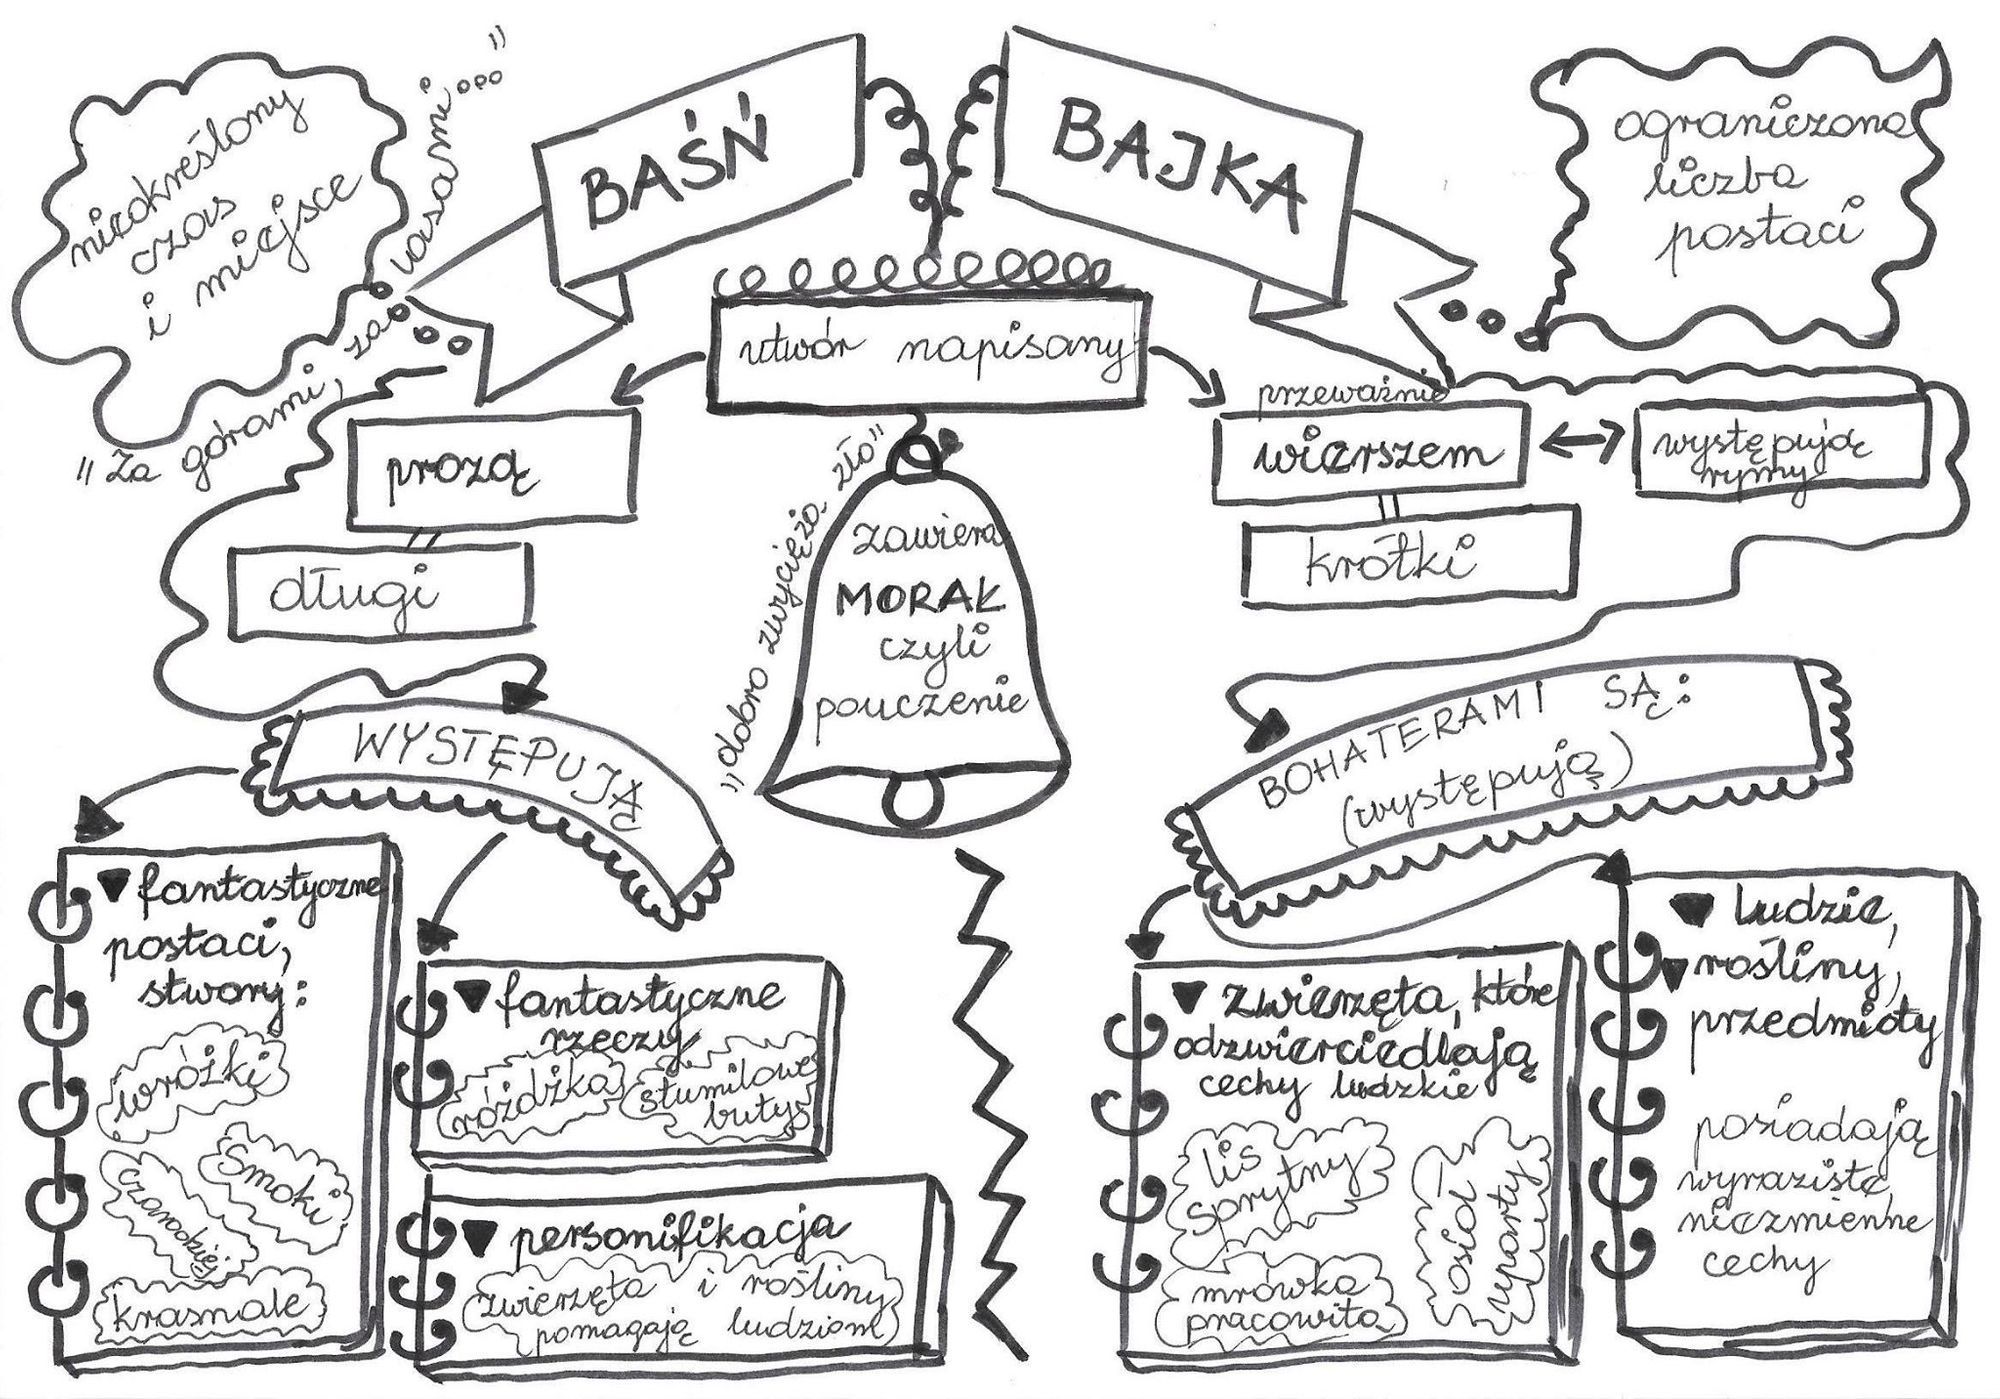 nieokreślony
czas
i miejsce
"Za górami, za lasami..."
BAŚŃ
BAJKA
ograniczona
liczba
postaci
utwór napisany:
prozą
długi
przeważnie
wierszem
występują
rymy
krótki
"dobro zwycięża zło"
zawiera
MORAŁ
czyli
pouczenie
WYSTĘPUJĄ
BOHATERAMI SĄ:
(występują)
fantastyczne
postaci,
stwory:
wróżki
Smoki
czarodzieje
krasnale
fantastyczne
rzeczy
różdżka
stumilowe
buty
personifikacja
zwierzęta i rośliny
pomagają ludziom
zwierzęta, które
odzwierciedlają
cechy ludzkie
lis
sprytny
osioł
uparty
mrówka
pracowita
ludzie,
rośliny,
przedmioty
posiadają
wyraziste,
niezmienne
cechy